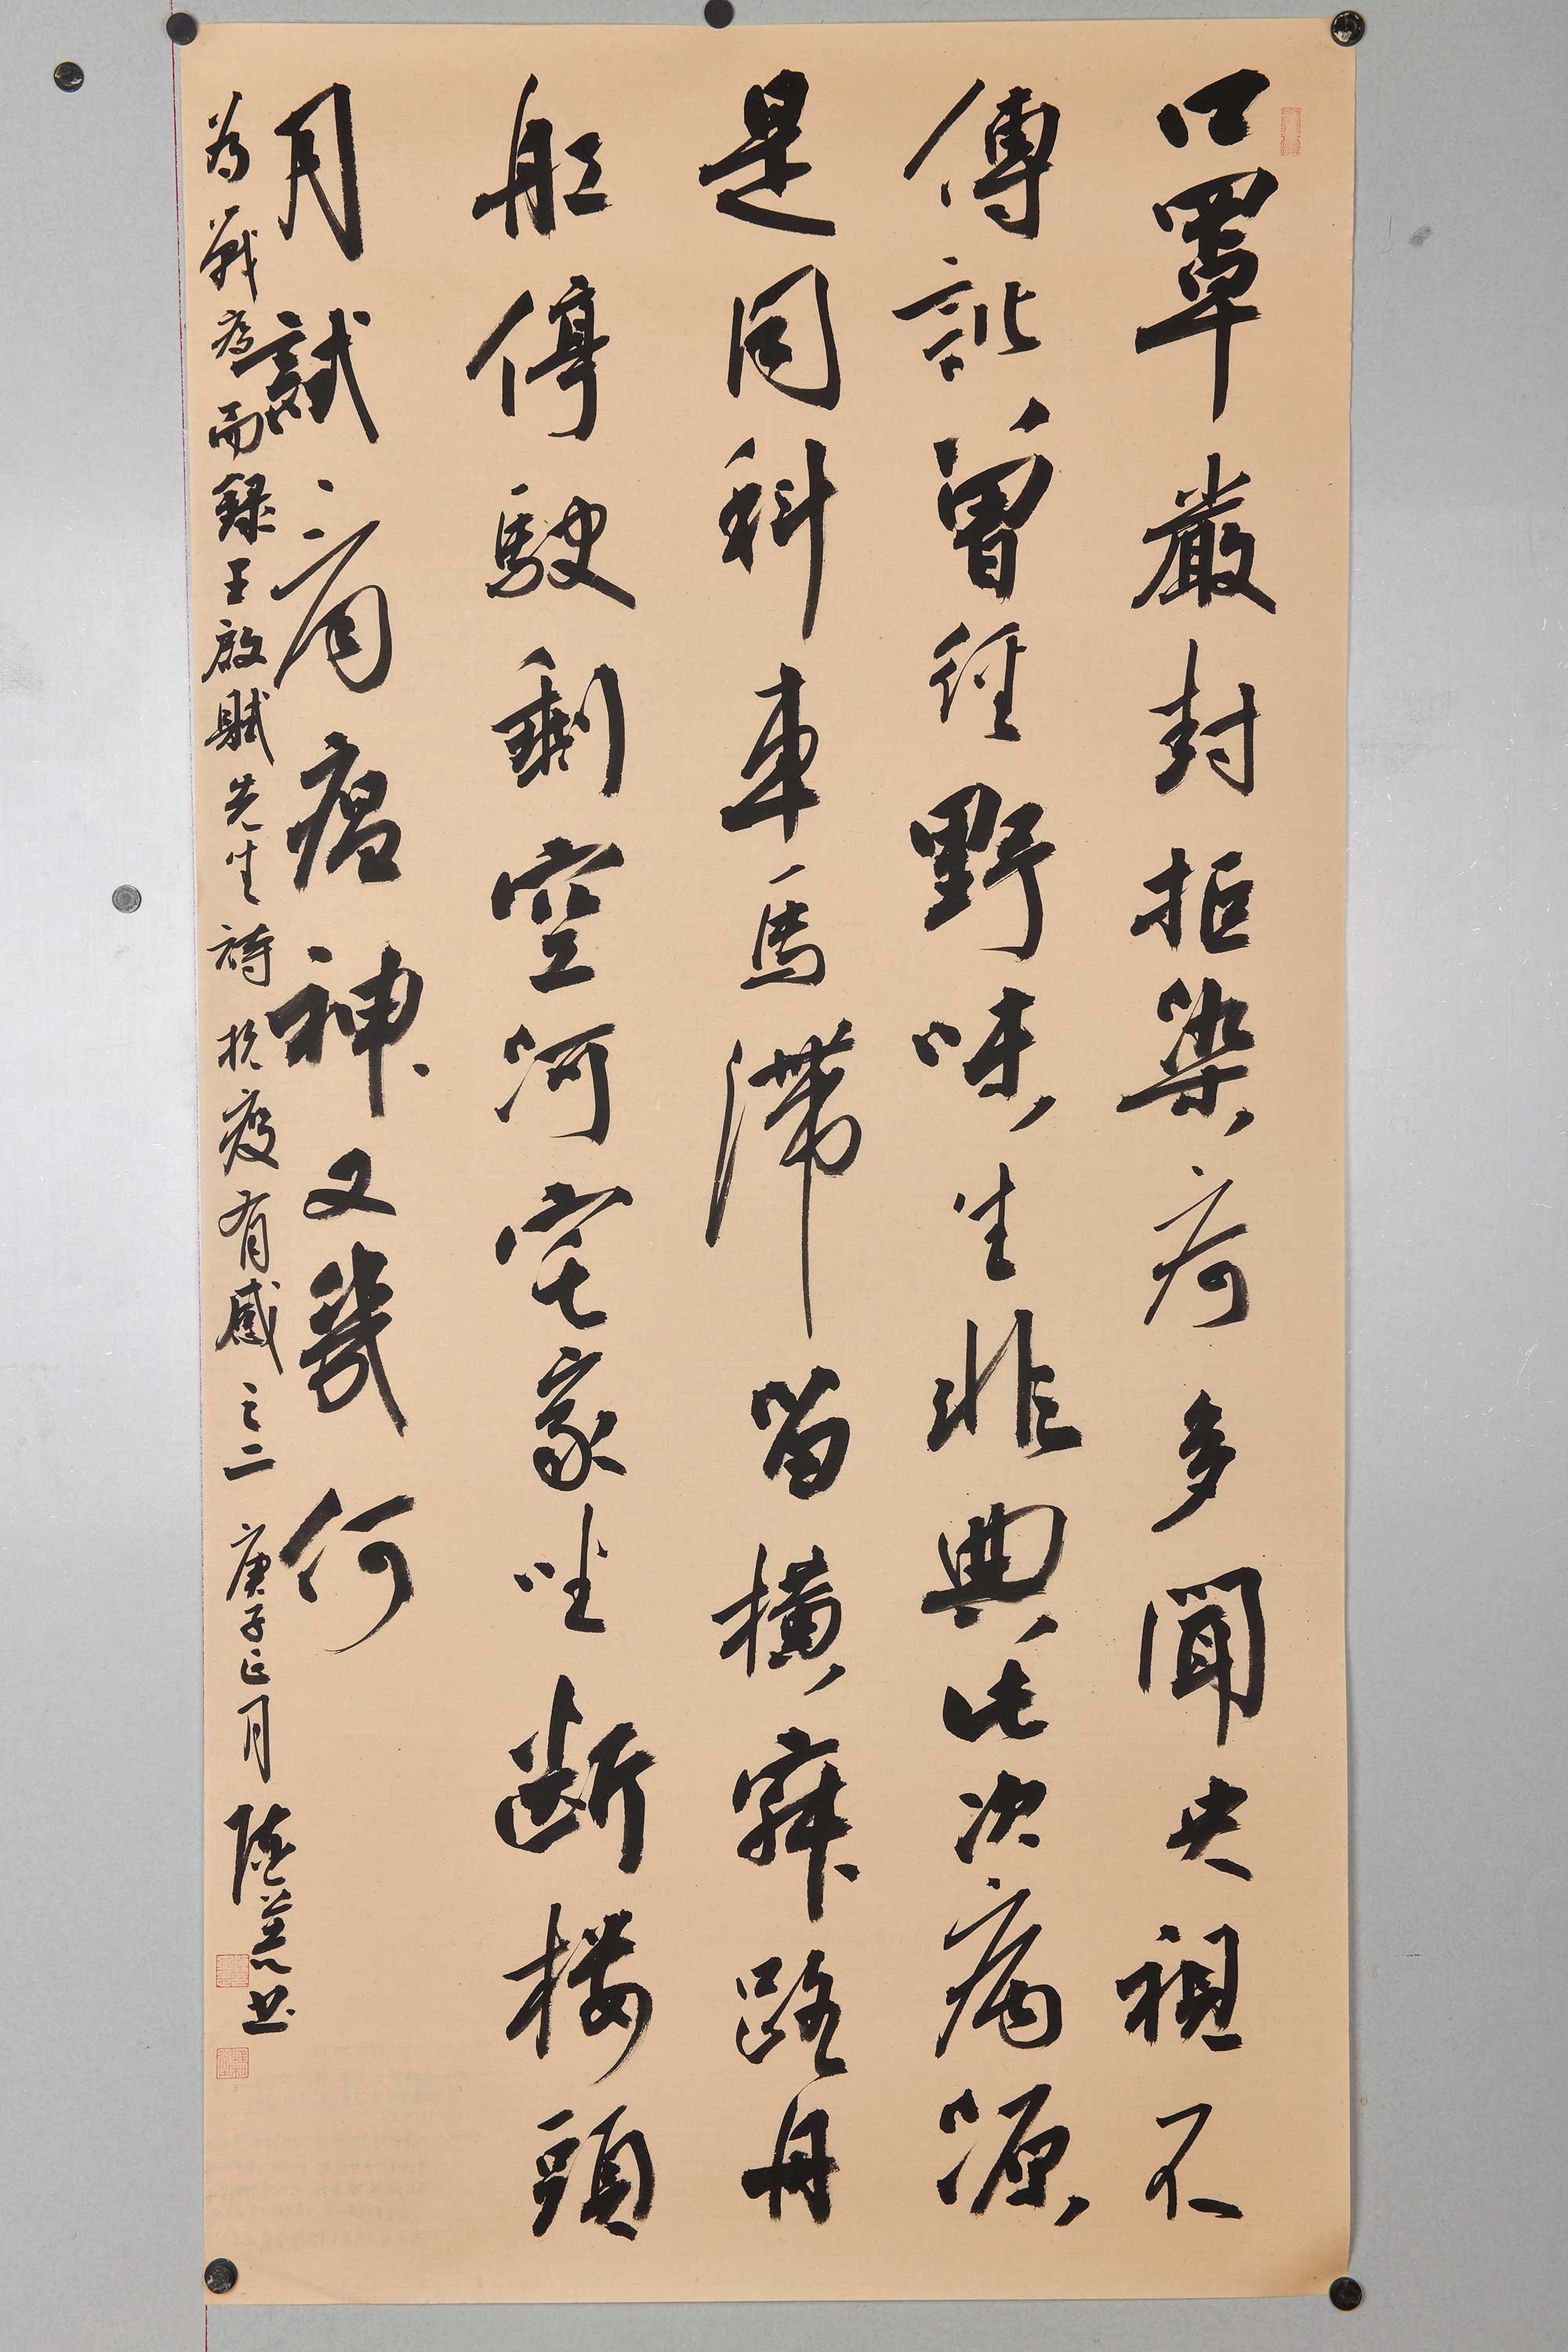 口罩嚴封拒染疴多聞央視不
傳訛曾經野味生非典此次病源
是同科車馬滯留橫寂路舟
船停駛剩空河宅家坐断楼頭
月試看瘟神又幾何
為戰疫而録王啟賦先生詩抗疫有感之二 庚子正月 书